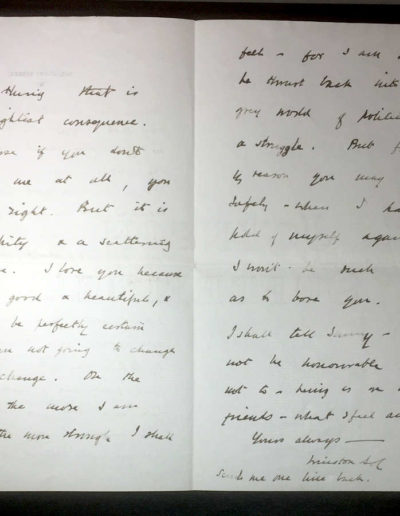 thing that is
consequence.
if you don't
me at all, you
right. But it is
& a scattering
I love you because
good & beautiful, &
be perfectly certain
not going to change
change. On the
the more I am
the more strongly I shall
feel – for I am
be thrust back into
grey world of politics
a struggle. But
reason you may
safely – when I
hold of myself again
I won't be such
as to bore you.
I shall tell –
not be honourable
not to – being
friends – what I feel
Yours always –
Winston S.C.
Send me one line back.